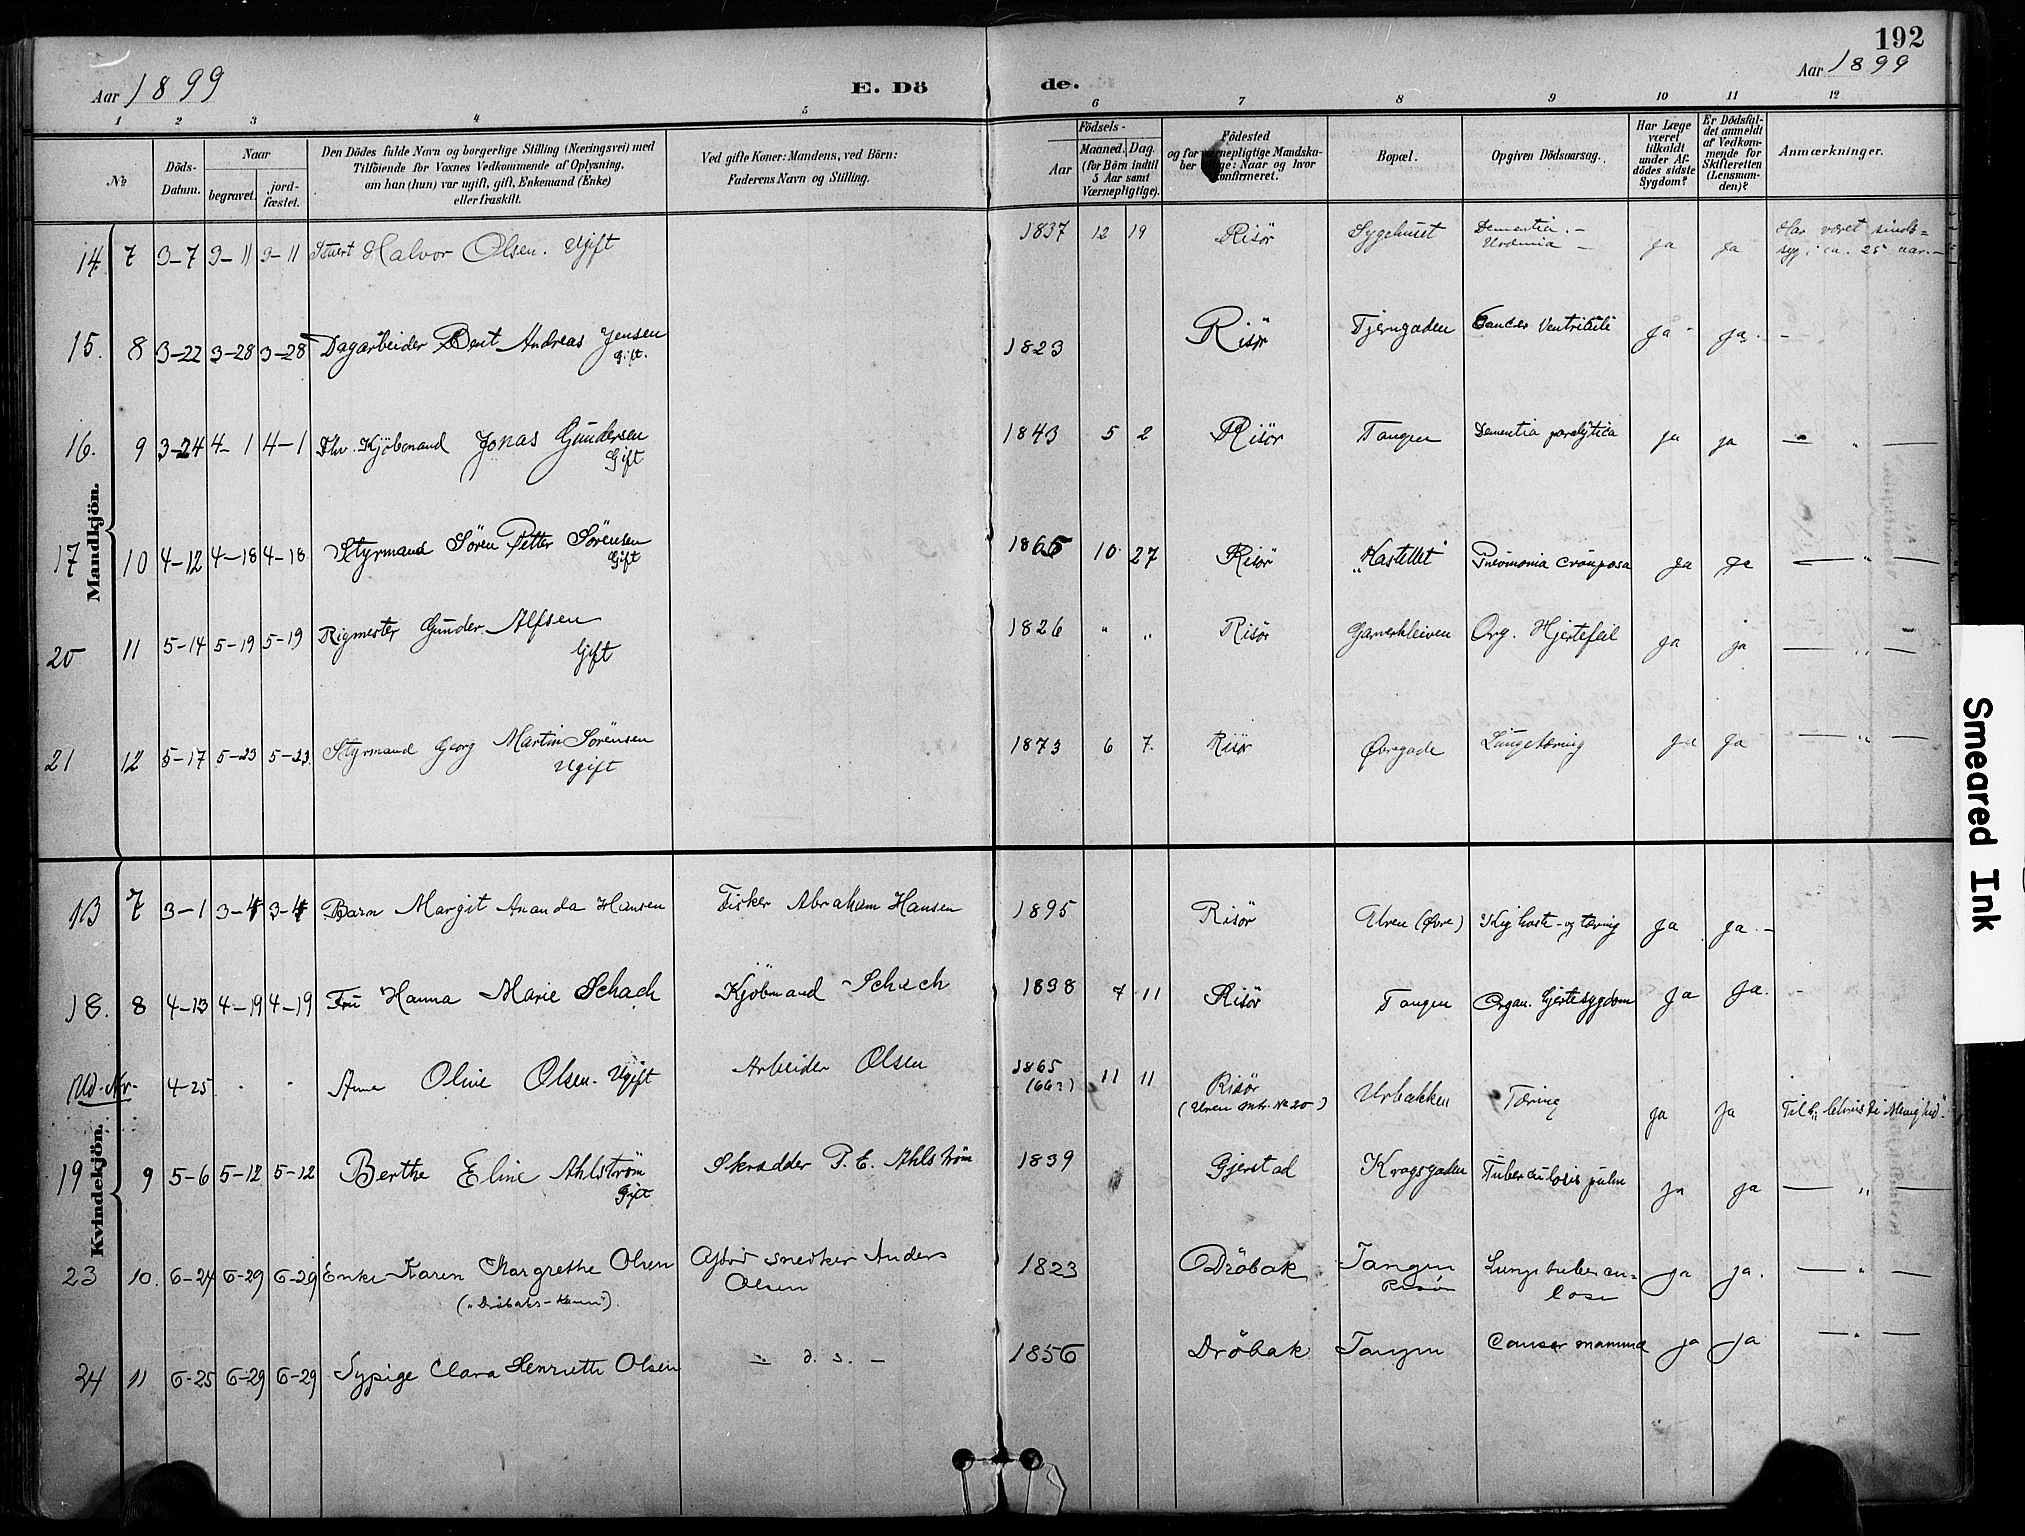 192
Aar 1899
E. Dö
de.
Aar 1899
1 2 3 4 5 6 7 8 9 10 11 12
No
Döds-
Datum.
Naar
begravet.
jord-
fæstet.
Den Dödes fulde Navn og borgerlige Stilling (Næringsvei) med
Tilföiende for Voxnes Vedkommende af Oplysning,
om han (hun) var ugift, gift, Enkemand (Enke)
eller fraskilt.
Ved gifte Koner: Mandens, ved Börn:
Faderens Navn og Stilling.
Födsels-
Aar
Maaned. Dag.
(for Börn indtil
5 Aar samt
Værnepligtige).
Födested
og for værnepligtige Mandska-
ber tillige: Naar og hvor
konfirmeret.
Bopæl.
Opgiven Dödsaarsag.
Har Læge
været
tilkaldt
under Af-
dödes sidste
Sygdom?
Er Dödsfal-
det anmeldt
af Vedkom-
mende for
Skifteretten
(Lensman-
den)?
Anmærkninger.
Mandkjön.
14. 7 3-7 3-11 3-11 Halvor Olsen. Ugift 1837 12 19 Risör Sygehuset Dementia. - ja ja Har været sinds=
syg i ca. 25 aar. -
15. 8 3-22 3-28 3-28 Dagarbeider Bent Andreas Jensen
Gift. 1823 Risör Tjerngaden Cancer Ventriculi ja ja. -
16. 9 3-24 4-1 4-1 Fhv. Kjöbmand Jonas Gundersen
Gift 1843 5 2 Risör Tangen Dementia paralytica ja ja — " —
17 10 4-12 4-18 4-18 Styrmand Sören Petter Sörensen
Gift 1865 10 27 Risör "Kastellet" Pneumonia crouposa ja ja — " —
20 11 5-14 5-19 5-19 Rigmester Gunder Alfsen
Gift 1826 " " Risör Garverkleiven Org. Hjertefeil ja ja — " —
21 12 5-17 5-23 5-23. Styrmand Georg Martin Sörensen
Ugift 1873 6 7. Risör Øvregade Lungetæring ja ja — " —
Kvindekjön.
13 7 3-1 3-4 3-4 Barn Margit Ananda Hansen Fisker Abraham Hansen 1895 Risör Uren (Øvre) Kighoste- og tæring ja ja. -
18. 8 4-13 4-19 4-19 Fru Hanna Marie Schach Kjöbmand Schach 1838 7 11 Risör Tangen Organ. Hjertesygdom ja ja. -
Ud. Nr. 4-25 - - Anna Oline Olsen. Ugift Arbeider Olsen 1865
(66?) 11 11 Risör
(Uren Mtr. No 20) Urbakken Tæring ja ja
19 9 5-6 5-12 5-12 Berthe Eline Ahlström
Gift Skrædder P. E. Ahlström 1839 Gjerstad Kragsgaden Tuberculosis pulm ja ja — " —
23 10. 6-24 6-29 6-29 Enke Karen Margrethe Olsen Afdød snedker Anders
Olsen 1823 Dröbak Tangen
Risör Lungetubercu=
lose ja ja. — " —
24 11 6-25 6-29 6-29 Sypige Clara Henriette Olsen — d. s. — 1856 Dröbak Tangen Cancer mamma ja ja — " —
Smeared Ink